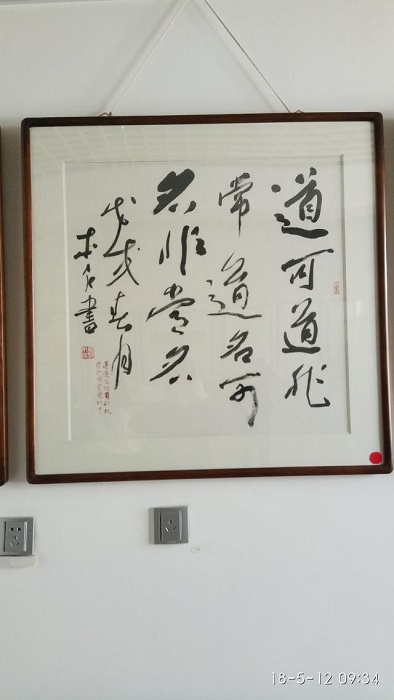 道可道非
常道名可
名非常名
戊戌春月
書
18-5-12 09:34